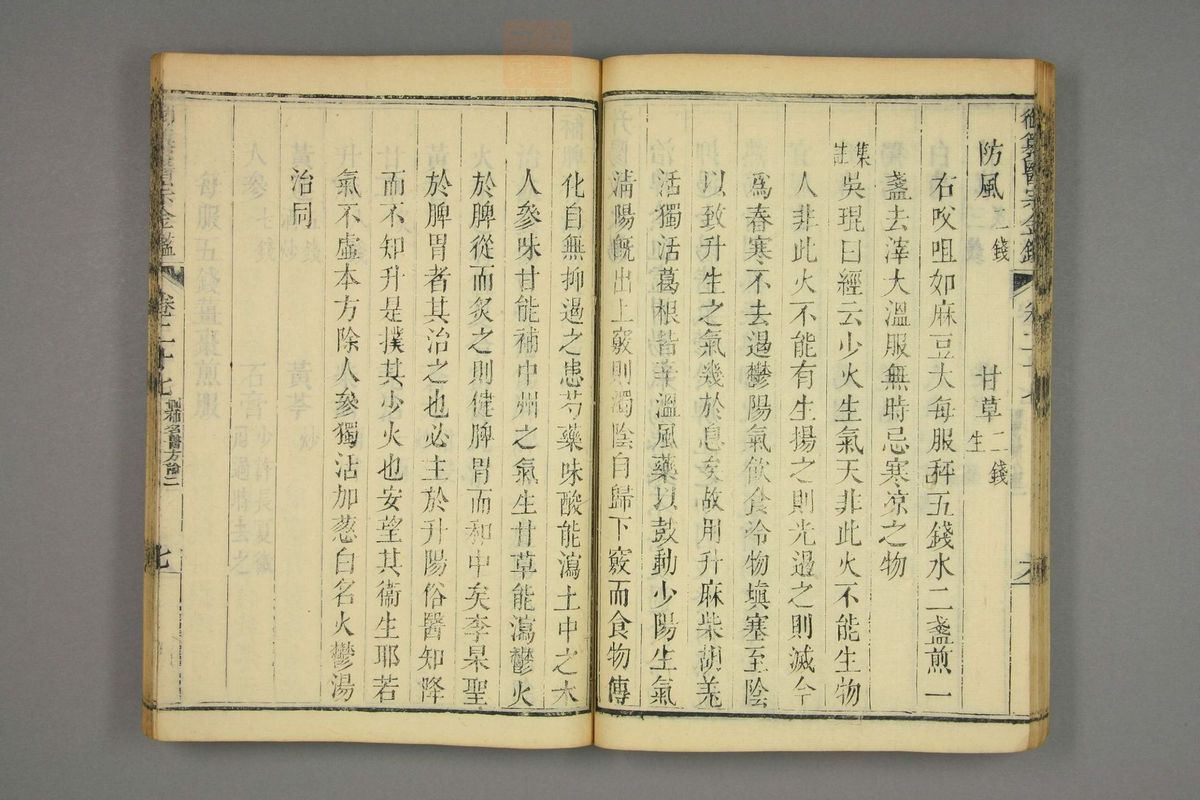 御纂醫宗金鑑
卷二十七
六
防風 二錢 甘草 生二錢
右㕮咀如麻豆大每服秤五錢水二盞煎一
盞去滓大溫服無時忌寒凉之物
集註 吳琨曰經云少火生氣天非此火不能生物
人非此火不能有生揚之則光遏之則滅今
爲春寒不去遏鬱陽氣飲食冷物塡塞至陰
以致升生之氣幾於息矣故用升麻柴胡羗
活獨活葛根皆辛溫風藥以鼓動少陽生氣
淸陽旣出上竅則濁陰自歸下竅而食物傳
化自無抑遏之患芍藥味酸能瀉土中之木
人參味甘能補中州之氣生甘草能瀉鬱火
於脾從而炙之則健脾胃而和中矣李杲聖
於脾胃者其治之也必主於升陽俗醫知降
而不知升是撲其少火也安望其衞生耶若
氣不虛本方除人參獨活加葱白名火鬱湯
治同
御纂醫宗金鑑
卷二十七
刪補名醫方論二
七